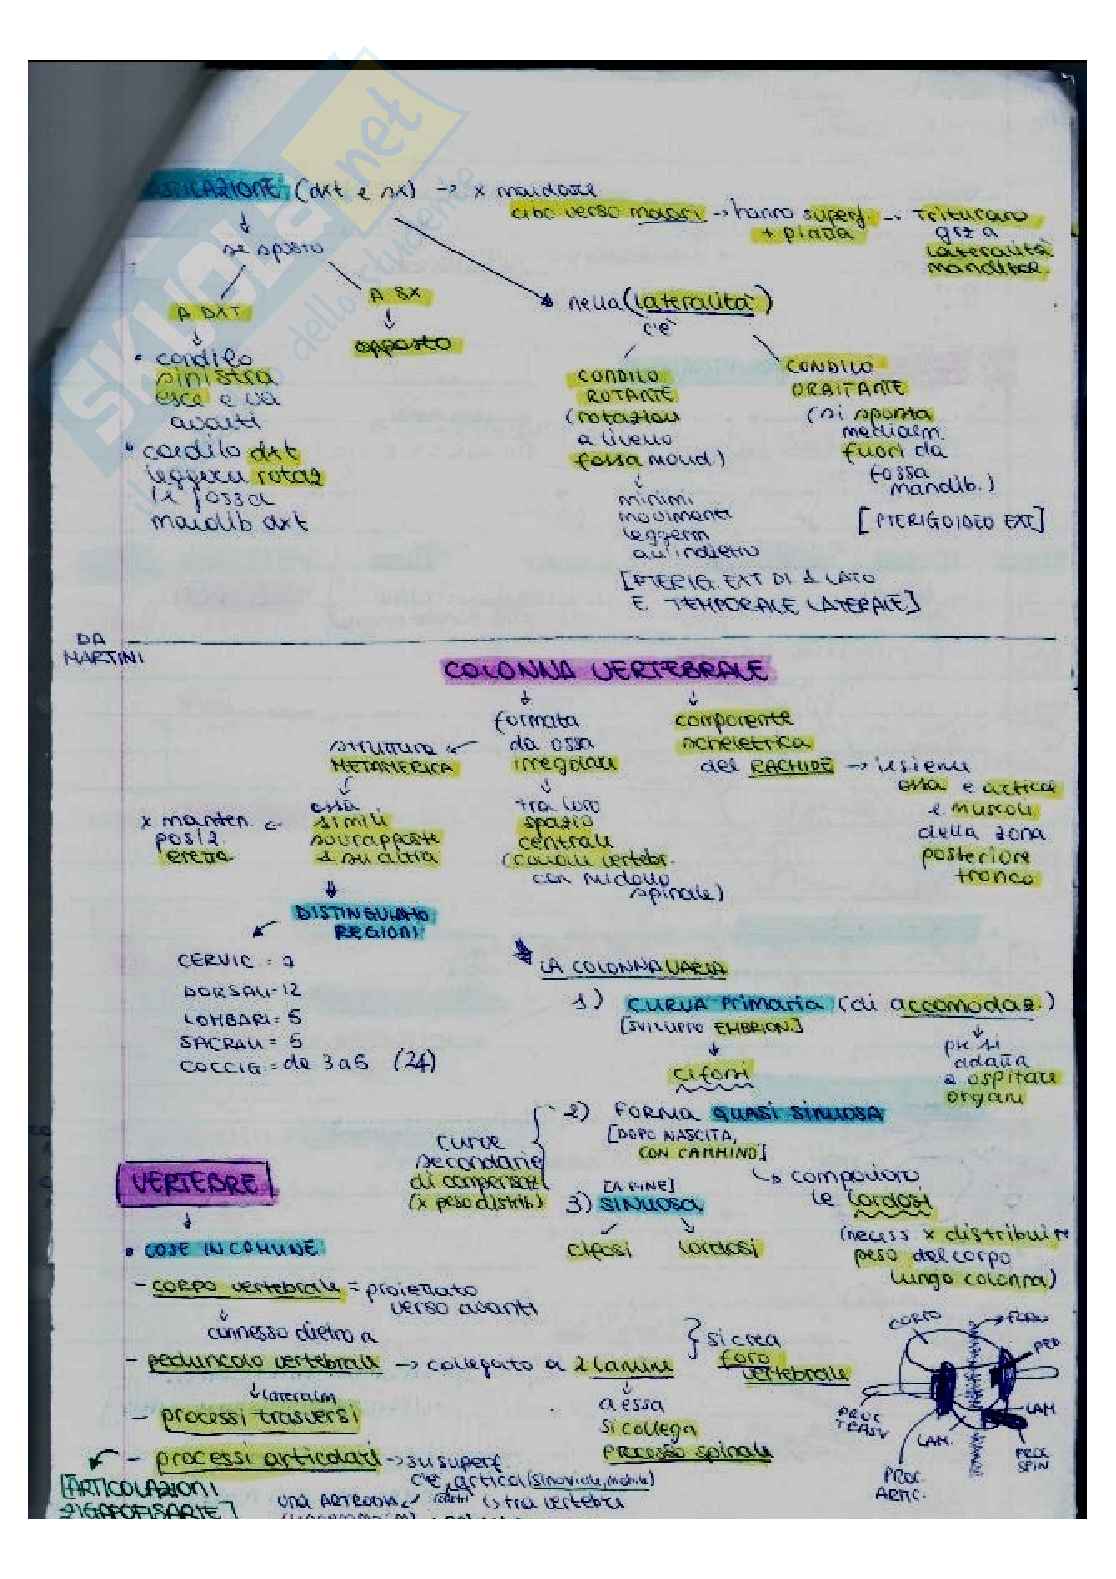 (dxt e sx) → x mandare
cibo verso molari → hanno superf. → Triturano
+ piatta
grz a
lateralità
mandibol.
se sposto
A DXT
A SX
opposto
• condilo
sinistra
esce e va
avanti
• condilo dxt
leggera rotaz
in fossa
mandib dxt
nella (lateralità)
c'è
CONDILO
ROTANTE
(rotazioni
a livello
fossa mand.)
minimi
movimenti
leggerm
all'indietro
[PTERIG. EXT DI 1 LATO
E TEMPORALE LATERALE]
CONDILO
ORBITANTE
(si sposta
medialm.
fuori da
fossa
mandib.)
[PTERIGOIDEO EXT]
DA
MARTINI
COLONNA VERTEBRALE
formata
da ossa
irregolari
componente
scheletrica
del RACHIDE → insieme
ossa e articol
e muscoli
della zona
posteriore
tronco
struttura
METAMERICA
ossa
simili
sovrapposte
1 su altra
x manten.
posiz.
eretta
tra loro
spazio
centrale
(canale vertebr.
con midollo
spinale)
DISTINGUIAMO
REGIONI
CERVIC = 7
DORSALI - 12
LOMBARI = 5
SACRALI = 5
COCCIG = da 3 a 5 (24)
LA COLONNA VARIA
1) CURVA PRIMARIA (di accomodaz.)
[SVILUPPO EMBRION.]
cifosi
per si
adatta
a ospitare
organi
2) FORMA QUASI SINUOSA
[DOPO NASCITA,
CON CAMMINO]
↳ compaiono
le lordosi
(necess x distribuire
peso del corpo
lungo colonna)
curve
secondarie
di compensaz
(x peso distrib.)
[A FINE]
3) SINUOSA
cifosi
lordosi
VERTEBRE
• COSE IN COMUNE
- CORPO vertebrale = proiettato
verso avanti
connesso dietro a
- peduncolo vertebrale → collegato a 2 lamine
} si crea
foro
vertebrale
lateralm
- processi trasversi
a essa
si collega
processo spinale
- processi articolari → su superf
c'è artica (sinoviale, mobile)
[ARTICOLAZIONI
ZIGAPOFISARIE]
una ARTRODIA
↳ tra vertebre
CORPO
FORO
PED
LAM
PROC
SPIN
LAM.
PROC
TRASV
PROC.
ARTIC.